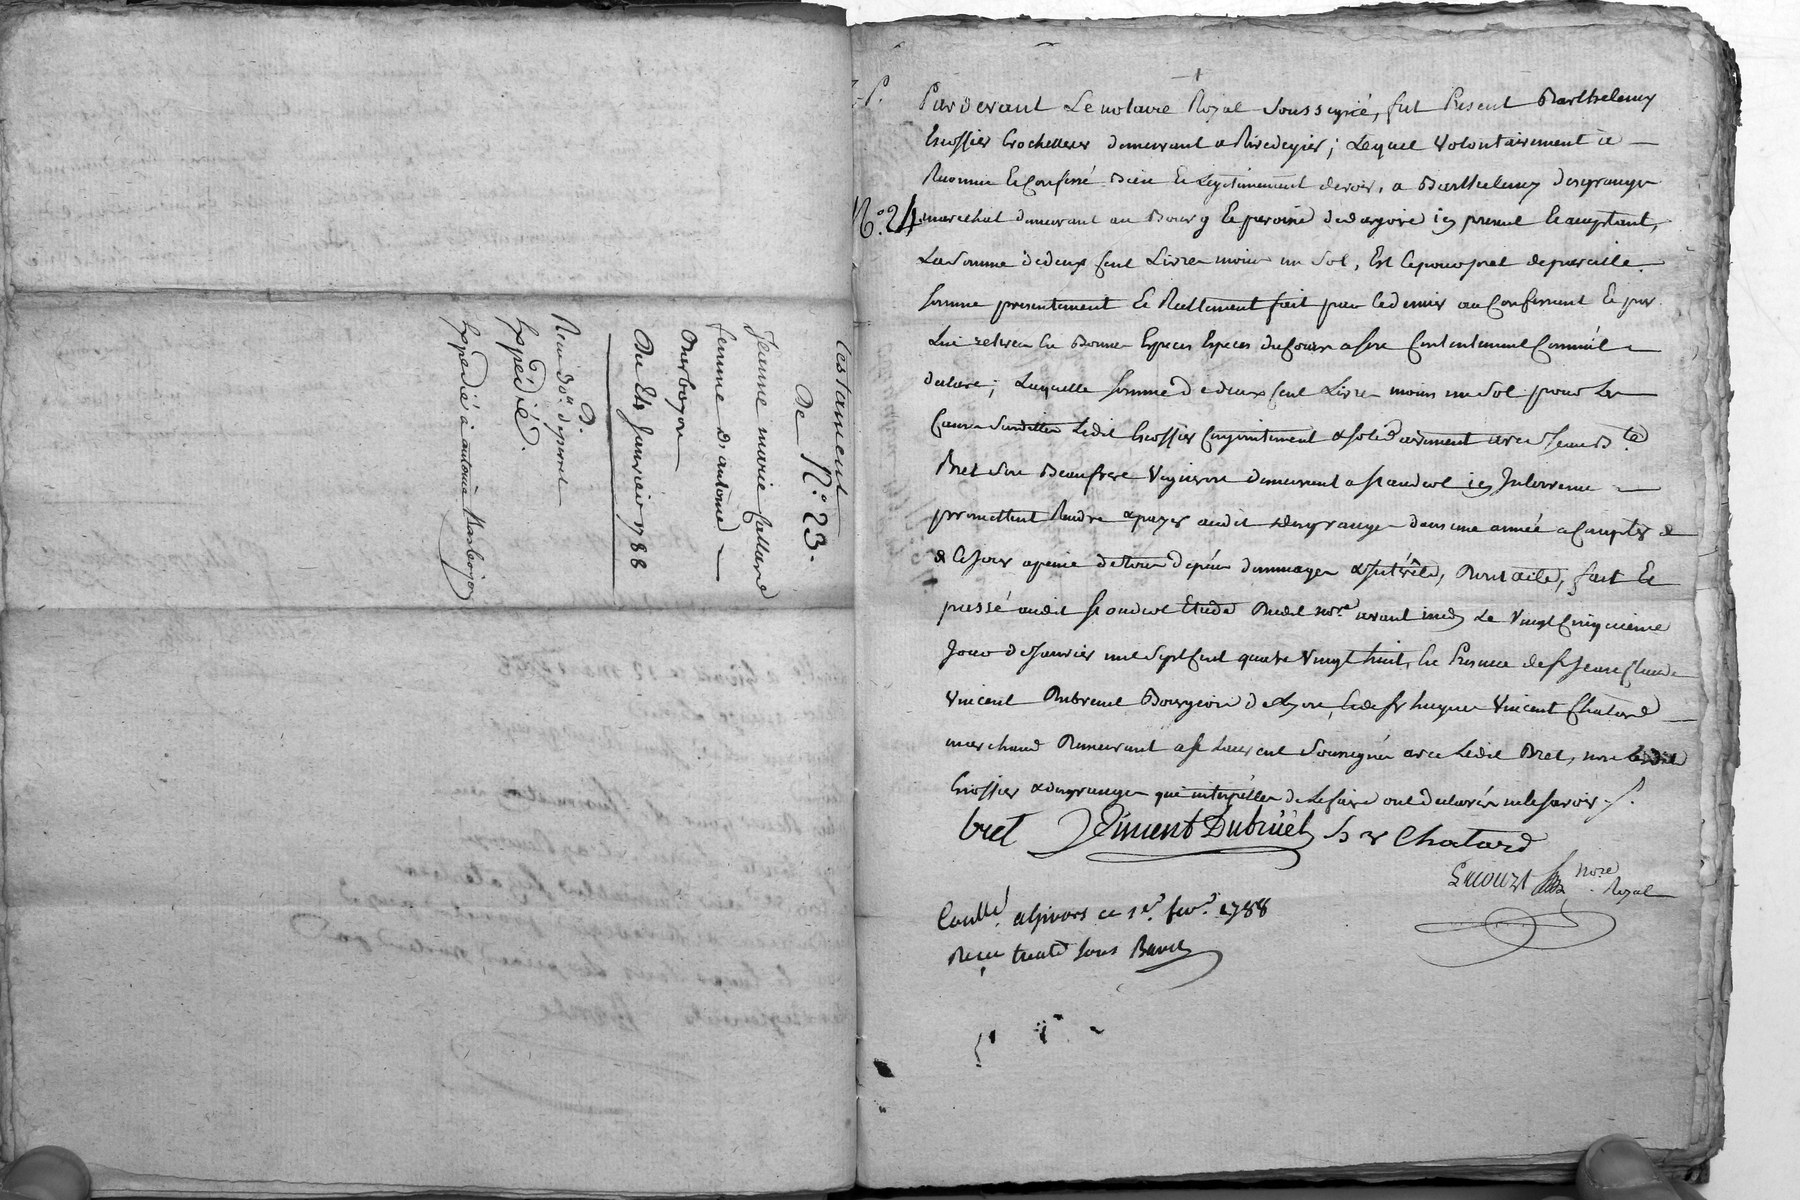 testament
De N.° 23.
Jeanne marie Callard
femme d'antoine
Du 24 Janvier 1788
Expédié.
Expedié à antoine
N.° 24
Pardevant Le notaire Royal Soussigné, fut Present Barthelemy
Escoffier Crocheteur demeurant a Rivedegier; Lequel volontairement a
Reconnu & Confessé Bien & Legitimement devoir, a Barthelemy desgranges
marechal demeurant au Bourg & paroisse de dargoire icy present & acceptant,
La Somme de deux Cent Livres moins un Sol, Est Ce pour pret de pareille
somme presentement & Reellement fait par ce dernier au Confessant & par
Lui retirée En Bonnes Especes Especes du Cours a son Contentement Comme il
declare; Laquelle Somme de deux Cent Livres moins un Sol pour Les
Causes Susdittes Ledit Escoffier Conjointement & solidairement avec Jean B.te
Bret Son Beaufrere Vigneron demeurant a st andeol icy Intervenu
promettent Rendre & payer audit desgranges dans une année a Compter de
Ce Jour a peine de tous depens dommages & Interêts, Dont acte, fait &
passé audit st andeol Etude Dudit no.re avant midy Le Vingt Cinquieme
Jour de Janvier mil Sept Cent quatre Vingt huit, En Presence de sr Jean Claude
Vincent Dubreuil Bourgeois de Lyon, & de sr hugues Vincent Chatard
marchand Demeurant a st Laurent Soussignés avec Ledit Bret, non Ledit
Escoffier & desgranges qui interpellés de Le faire ont declarés ne le savoir
bret Vincent Dubrüel h v Chatard
no.re Royal
Con.llé a Givors ce 1er. fev.r 1788
Recu trente sous